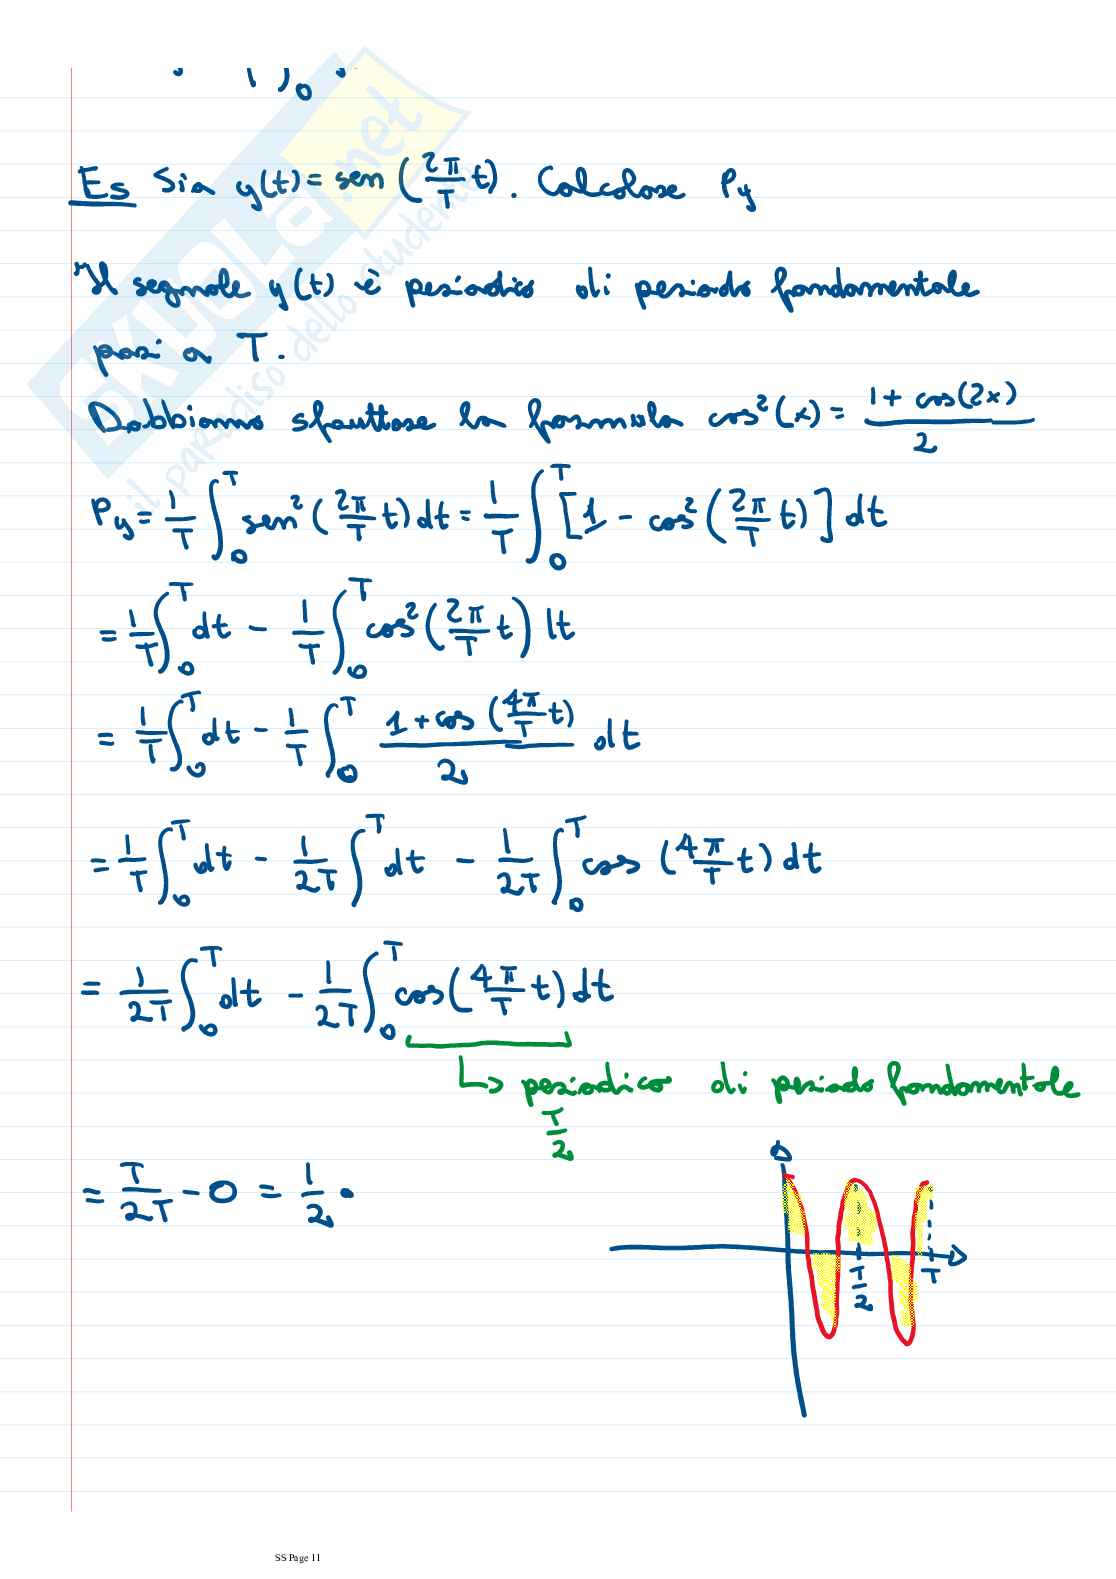 Es Sia y(t) = sen (2π/T t). Calcolare Py
Il segnale y(t) è periodico di periodo fondamentale
pari a T.
Dobbiamo sfruttare la formula cos²(x) = (1 + cos(2x))/2
Py = 1/T ∫₀ᵀ sen² (2π/T t) dt = 1/T ∫₀ᵀ [1 - cos² (2π/T t)] dt
= 1/T ∫₀ᵀ dt - 1/T ∫₀ᵀ cos² (2π/T t) dt
= 1/T ∫₀ᵀ dt - 1/T ∫₀ᵀ (1 + cos (4π/T t))/2 dt
= 1/T ∫₀ᵀ dt - 1/2T ∫ᵀ dt - 1/2T ∫₀ᵀ cos (4π/T t) dt
= 1/2T ∫₀ᵀ dt - 1/2T ∫₀ᵀ cos (4π/T t) dt
↳ periodico di periodo fondamentale
T/2
= T/2T - 0 = 1/2 .
T/2 T
SKUOLA.net
il paradiso dello studente
SS Page 11